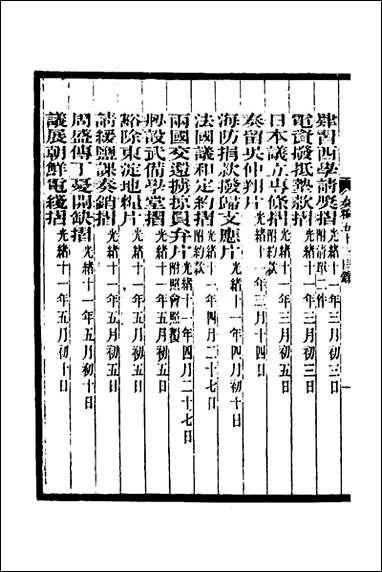 肄習西學請獎摺附清單二件 光緒十一年三月初三日
電資撥抵墊款摺 光緒十一年三月初三日
日本議立專條摺附約款 光緒十一年三月初五日
奏留吳仲翔片 光緒十一年三月十四日
海防捐款撥歸支應片 光緒十一年四月初十日
法國議和定約摺附約款 光緒十一年四月二十七日
兩國交還擄掠員弁片附照會照覆 光緒十一年四月二十七日
創設武備學堂摺 光緒十一年五月初五日
豁除東淀地糧片 光緒十一年五月初五日
請緩鹽課奏銷摺 光緒十一年五月初五日
周盛傳丁憂開缺摺 光緒十一年五月初十日
議展朝鮮電綫摺 光緒十一年五月初十日